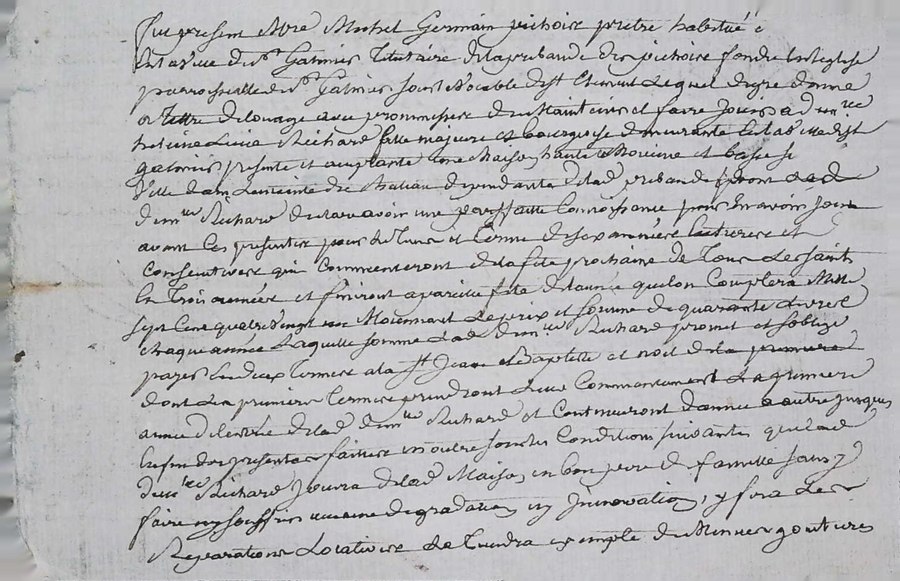 fut present Mre Michel Germain pichoir pretre habitué
en la ville de St Galmier Titulaire de la prebande des pichoire fondé en l'eglise
parroissialle de St Galmier sous le vocable de St Clement Lequel de gre donne
a Titre de louage avec promesse de Maintenir et faire jouir a dlle
Richard fille majeure et bourgoise demeurante en la ville de St
galmier presente et acceptante une Maison haute Moienne et basse
ville dans L'enceinte du chateau dependante de lad. prebande dont lad.
dmlle Richard declare avoir une parfaitte Connoissance pour En avoir joui
avant Ces presentes pour Le Tems et Terme de six années entieres et
Consecutives qui Commenceront de la fete prochaine de Tous Les saints
En Trois années et finiront a pareille fete de l'année que l'on Comptera Mille
sept Cent quatre vingt un Moiennant Le prix et somme de quarante Livres
chaque année Laquelle somme Lad. dmlle Richard promet et s'oblige
payer En deux termes a la St Jean Baptiste et noel de la premiere
dont Les premiers termes prendront Leur Commencement La premiere
année d'entrée de lad. dmlle Richard et Continueront d'année a autre jusques
En fin des presentes faittes en outre sous les Conditions suivantes que lad.
dmlle Richard jouira de lad. Maison en bon pere de famille sans y
faire ny souffrir aucune degradation ny Innovation, y fera Les
Reparations Locatives La Tiendra exempte de Menues goutieres